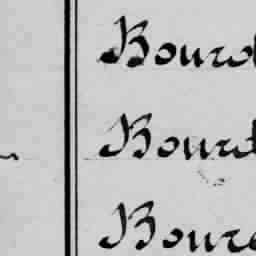 Bourd
Bourd
Boure